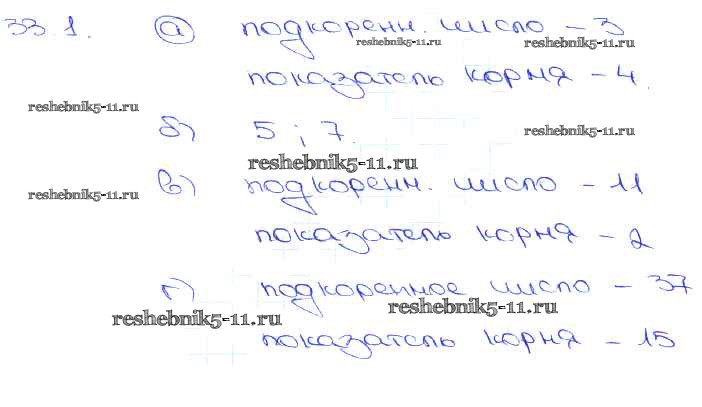 33.1. а) подкоренн. число – 3
reshebnik5-11.ru reshebnik5-11.ru
показатель корня – 4.
reshebnik5-11.ru
б) 5 ; 7.
reshebnik5-11.ru
reshebnik5-11.ru
в) подкоренн. число – 11
reshebnik5-11.ru
показатель корня – 2
г) подкоренное число – 37
reshebnik5-11.ru
reshebnik5-11.ru
показатель корня – 15